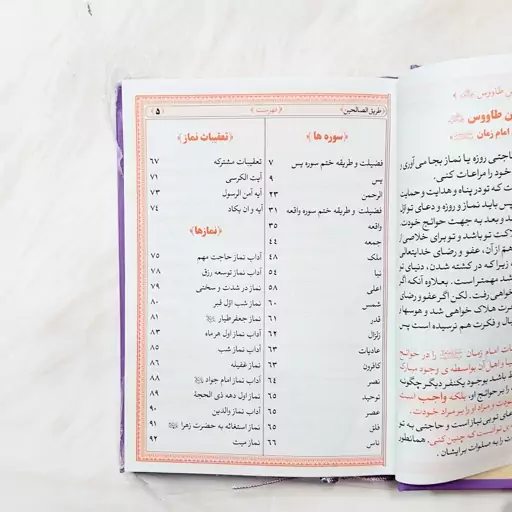 ﴿طریق الصالحین﴾
﴿فهرست﴾
﴿۵﴾
﴿سوره ها﴾
فضیلت و طریقه ختم سوره یس ۷
یس ۹
الرحمن ۲۳
فضیلت و طریقه ختم سوره واقعه ۳۱
واقعه ۳۵
جمعه ۴۴
ملک ۴۸
نبا ۵۴
اعلی ۵۸
شمس ۶۰
قدر ۶۱
زلزال ۶۲
عادیات ۶۳
کافرون ۶۳
نصر ۶۴
توحید ۶۵
عصر ۶۵
فلق ۶۵
ناس ۶۶
﴿تعقیبات نماز﴾
تعقیبات مشترکه ۶۷
آیت الکرسی ۷۱
آیه آمن الرسول ۷۳
آیه و ان یکاد ۷۴
﴿نمازها﴾
آداب نماز حاجت مهم ۷۵
آداب نماز توسعه رزق ۷۸
نماز در شدت و سختی ۷۹
نماز شب اوّل قبر ۸۰
نماز جعفرطیار ۸۱
آداب نماز اول هرماه ۸۳
آداب نماز شب ۸۵
نماز غفیله ۸۶
آداب نماز امام جواد ۸۸
نماز اول دهه ذی الحجة ۸۹
آداب نماز والدین ۹۰
نماز استغاثه به حضرت زهرا ۹۱
نماز میت ۹۲
طاووس
ن طاووس
امام زمان
حاجتی روزه یا نماز بجا می آوری و
خود را مراعات کنی.
ست که تو در پناه و هدایت و حمایت
پس باید نماز و روزه و دعای تو از
د و بعد به جهت حوائج خودت.
لاکت تو باشد و تو برای خلاصی از
هم از آن، عفو و رضای خدایتعالی
زیرا که در کشته شدن، دنیای تو
شد مهمتر است. بعلاوه آنکه اگر
خواهی رفت. لکن اگر عفو و رضای
رت هلاک خواهی شد و هوسهای
یال و فکرت هم نرسیده است پس
ات امام زمان را در حوائج
نیا و اهل آن بواسطه ی وجود مبارک
باشد بوجود یکنفر دیگر چگونه
را بر حوائج او، بلکه واجب است
و مراد او را بر مراد خودت.
ی توبی نیاز است و حاجتی به تو
ی تو است که چنین کنی. همانطور
د را به صلوات برایشان.